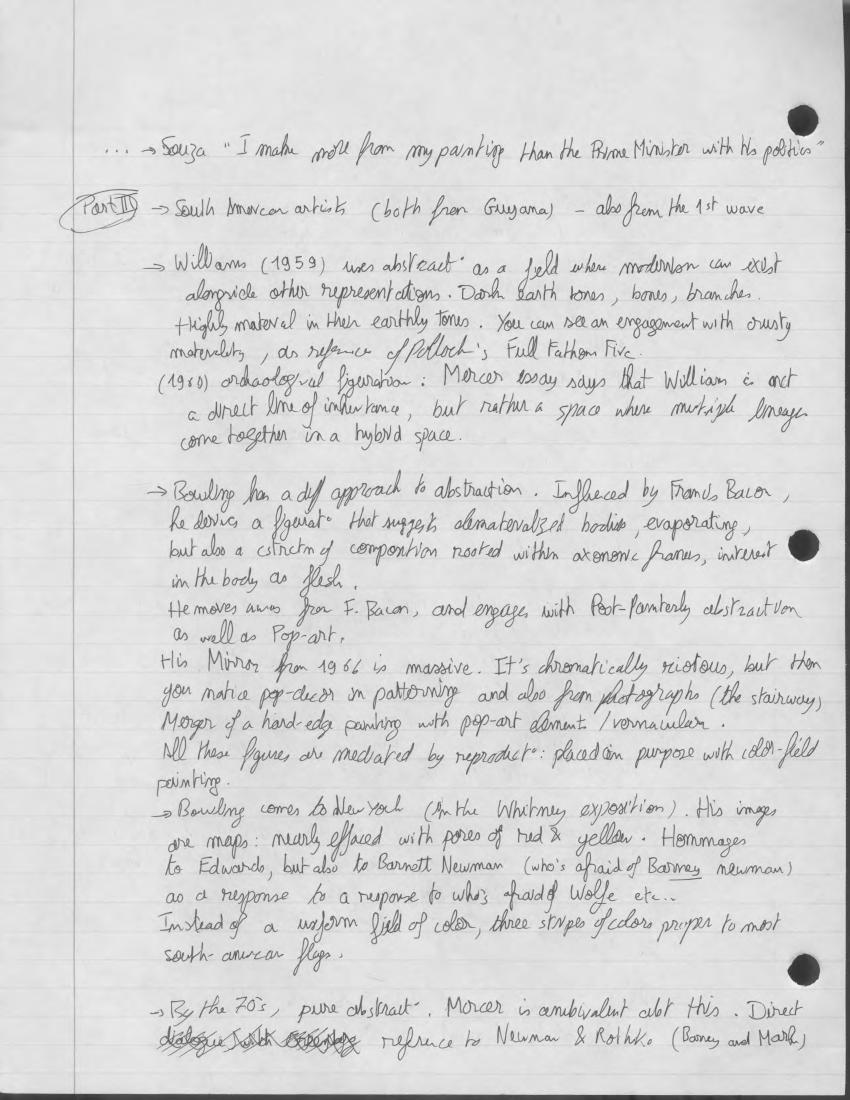 ... → Souza "I make more from my painting than the Prime Minister with his politics"
Part II → South American artists (both from Guyana) - also from the 1st wave
→ Williams (1959) uses abstract° as a field where modernism can exist
alongside other representations. Dark earth tones, bones, branches.
Highly material in their earthly tones. You can see an engagement with crusty
materiality, as reference of Pollock's Full Fathom Five.
(1960) archaological figuration: Mercer essay says that William is not
a direct line of inheritance, but rather a space where multiple lineages
come together in a hybrid space.
→ Bowling has a diff approach to abstraction. Influced by Francis Bacon,
he derives a figurat° that suggests dematerialized bodies, evaporating,
but also a of composition rooted within frames, interest
in the body as flesh.
He moves away from F. Bacon, and engages with Post-Painterly abstraction
as well as Pop-art.
His Mirror from 1966 is massive. It's chromatically riotous, but then
you notice pop-decor in patterning and also from photographs (the stairway)
Merger of a hard-edge painting with pop-art element / vernacular.
All these figures are mediated by reproduct°: placed on purpose with color-field
painting.
→ Bowling comes to New York (in the Whitney exposition). His images
are maps: nearly effaced with pores of red & yellow. Hommages
to Edwards, but also to Barnett Newman (who's afraid of Barney newman)
as a response to a response to who's afraid of Wolfe etc...
Instead of a uniform field of color, three stripes of colors proper to most
south-american flags.
→ By the 70's, pure abstract°. Mercer is ambivalent abt this. Direct
reference to Newman & Rothko (Barney and Mark)